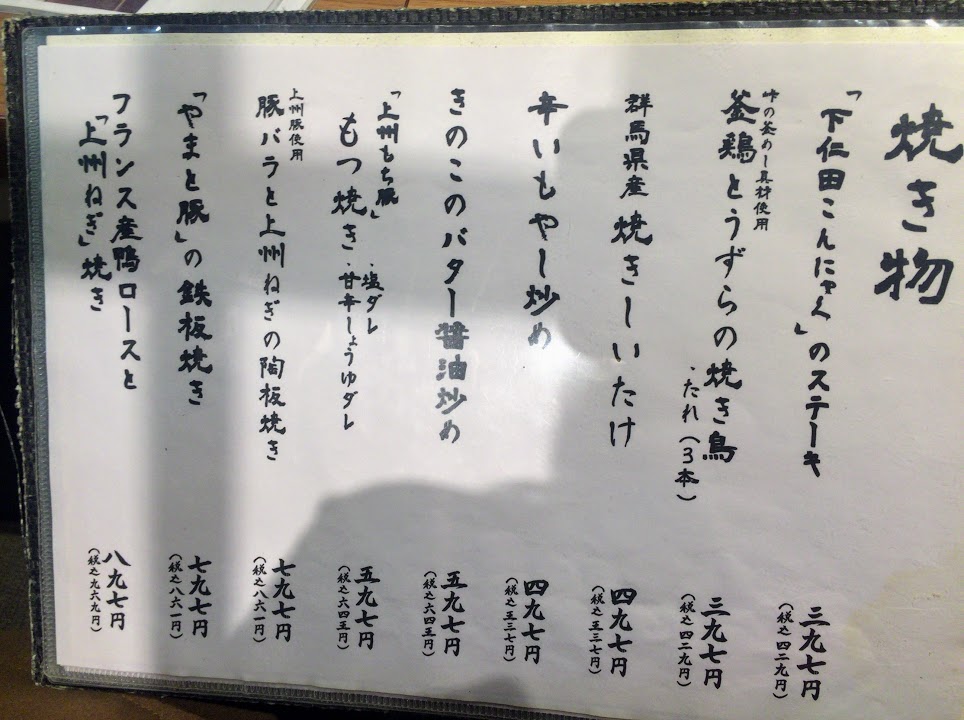 焼き物
「下仁田こんにゃく」のステーキ
三九七円
(税込四二九円)
峠の釜めし具材使用
釜鶏とうずらの焼き鳥
・たれ(3本)
三九七円
(税込四二九円)
群馬県産焼きしいたけ
四九七円
(税込五三七円)
辛いもやし炒め
四九七円
(税込五三七円)
きのこのバター醤油炒め
五九七円
(税込六四五円)
「上州もち豚」
もつ焼き・塩ダレ
・甘辛しょうゆダレ
五九七円
(税込六四五円)
上州豚使用
豚バラと上州ねぎの陶板焼き
七九七円
(税込八六一円)
「やまと豚」の鉄板焼き
七九七円
(税込八六一円)
フランス産鴨ロースと
「上州ねぎ」焼き
八九七円
(税込九六九円)